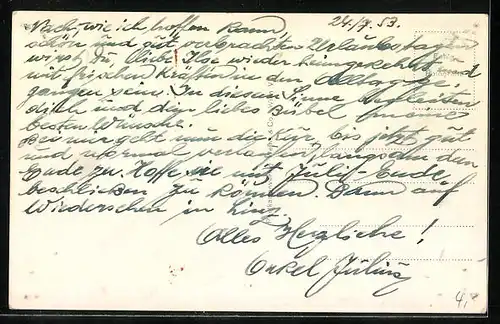 24./7. 53.
Nach, wie ich hoffen kann
schön und gut verbrachten Urlaubstagen
wirst du, liebe Ilse wieder heimgekehrt und
mit frischen Kräften in den Alltag ge-
gangen sein. In diesem Sinne begleiten
dich und dein liebes Bisbel meine
besten Wünsche.
Bei mir geht nun die Kur, bis jetzt gut
und normal verlaufen, langsam dem
Ende zu. Hoffe sie mit Juli-Ende
beschließen zu können. Dann auf
Wiedersehen in Linz.
Alles Herzliche!
Onkel Julius
4,-